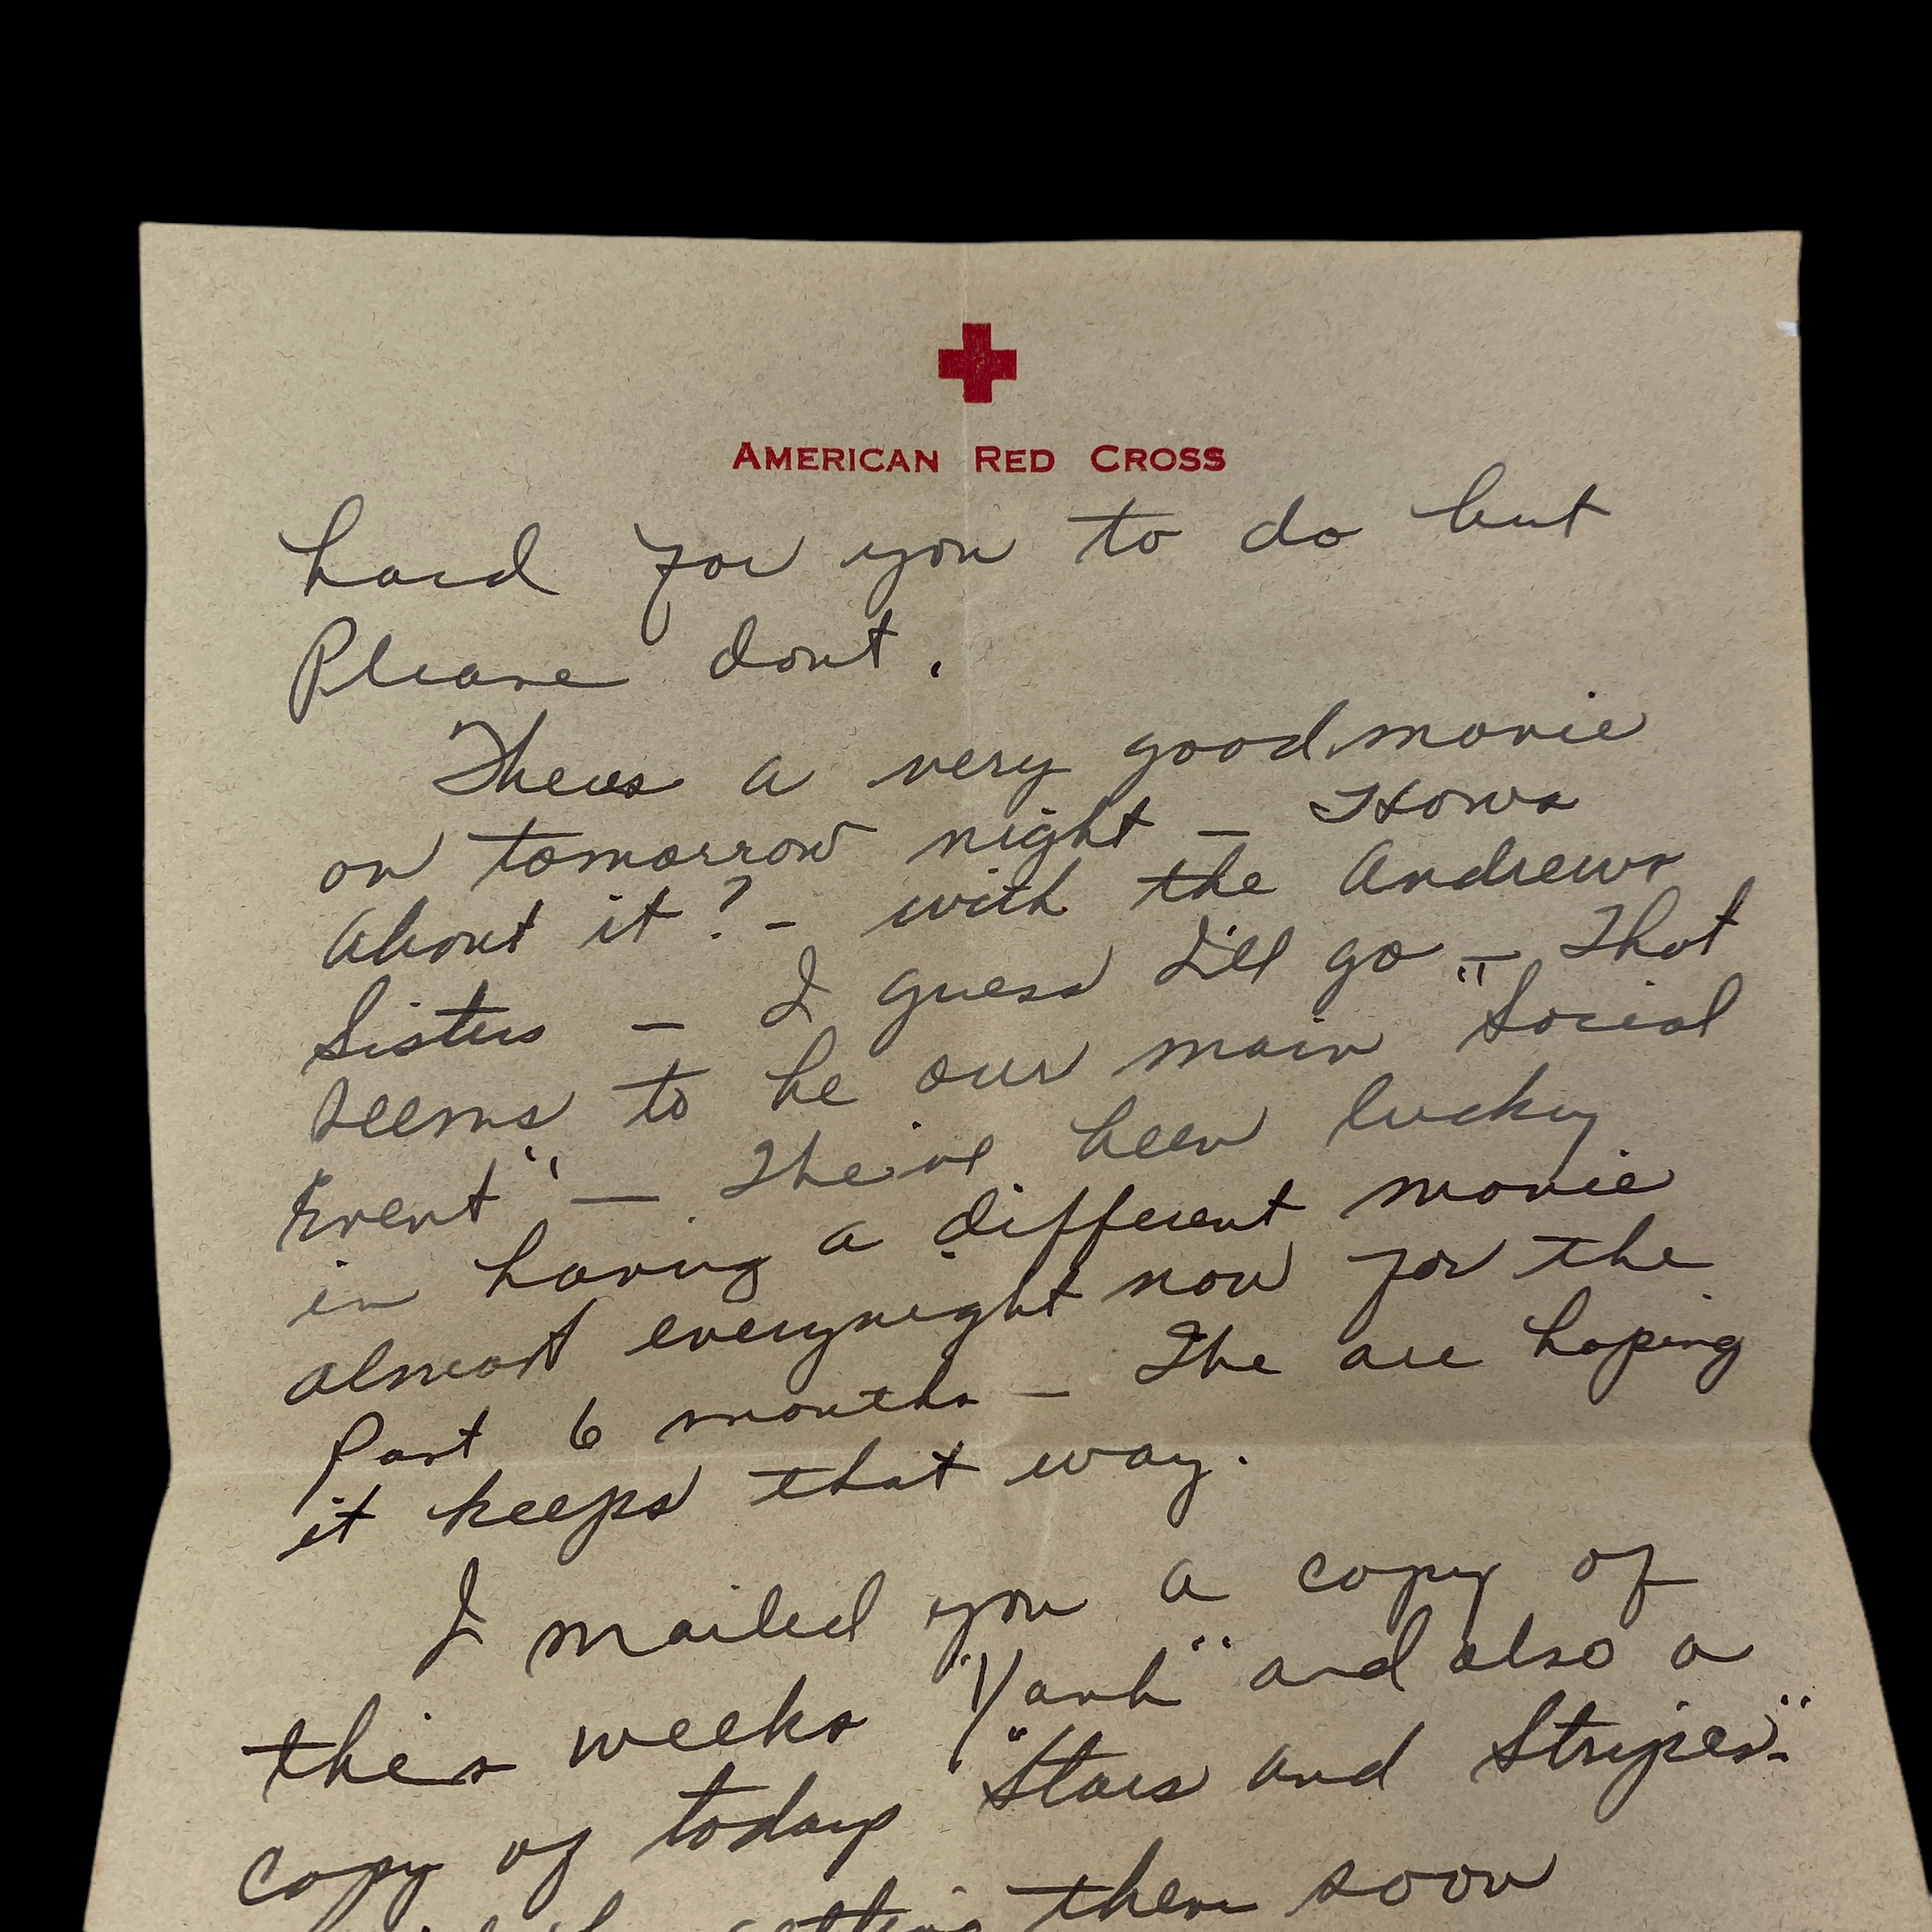 AMERICAN RED CROSS
hard for you to do but
Please dont.
Theres a very good movie
on tomorrow night — Hows
About it? - with the Andrews
Sisters — I guess I'll go — That
seems to be our main "Social
Event" — The've been lucky
in having a different movie
almost everynight now for the
Past 6 months — The are hoping
it keeps that way.
I mailed you a copy of
this weeks "Yank" and also a
copy of todays "Stars and Stripes".
getting them soon